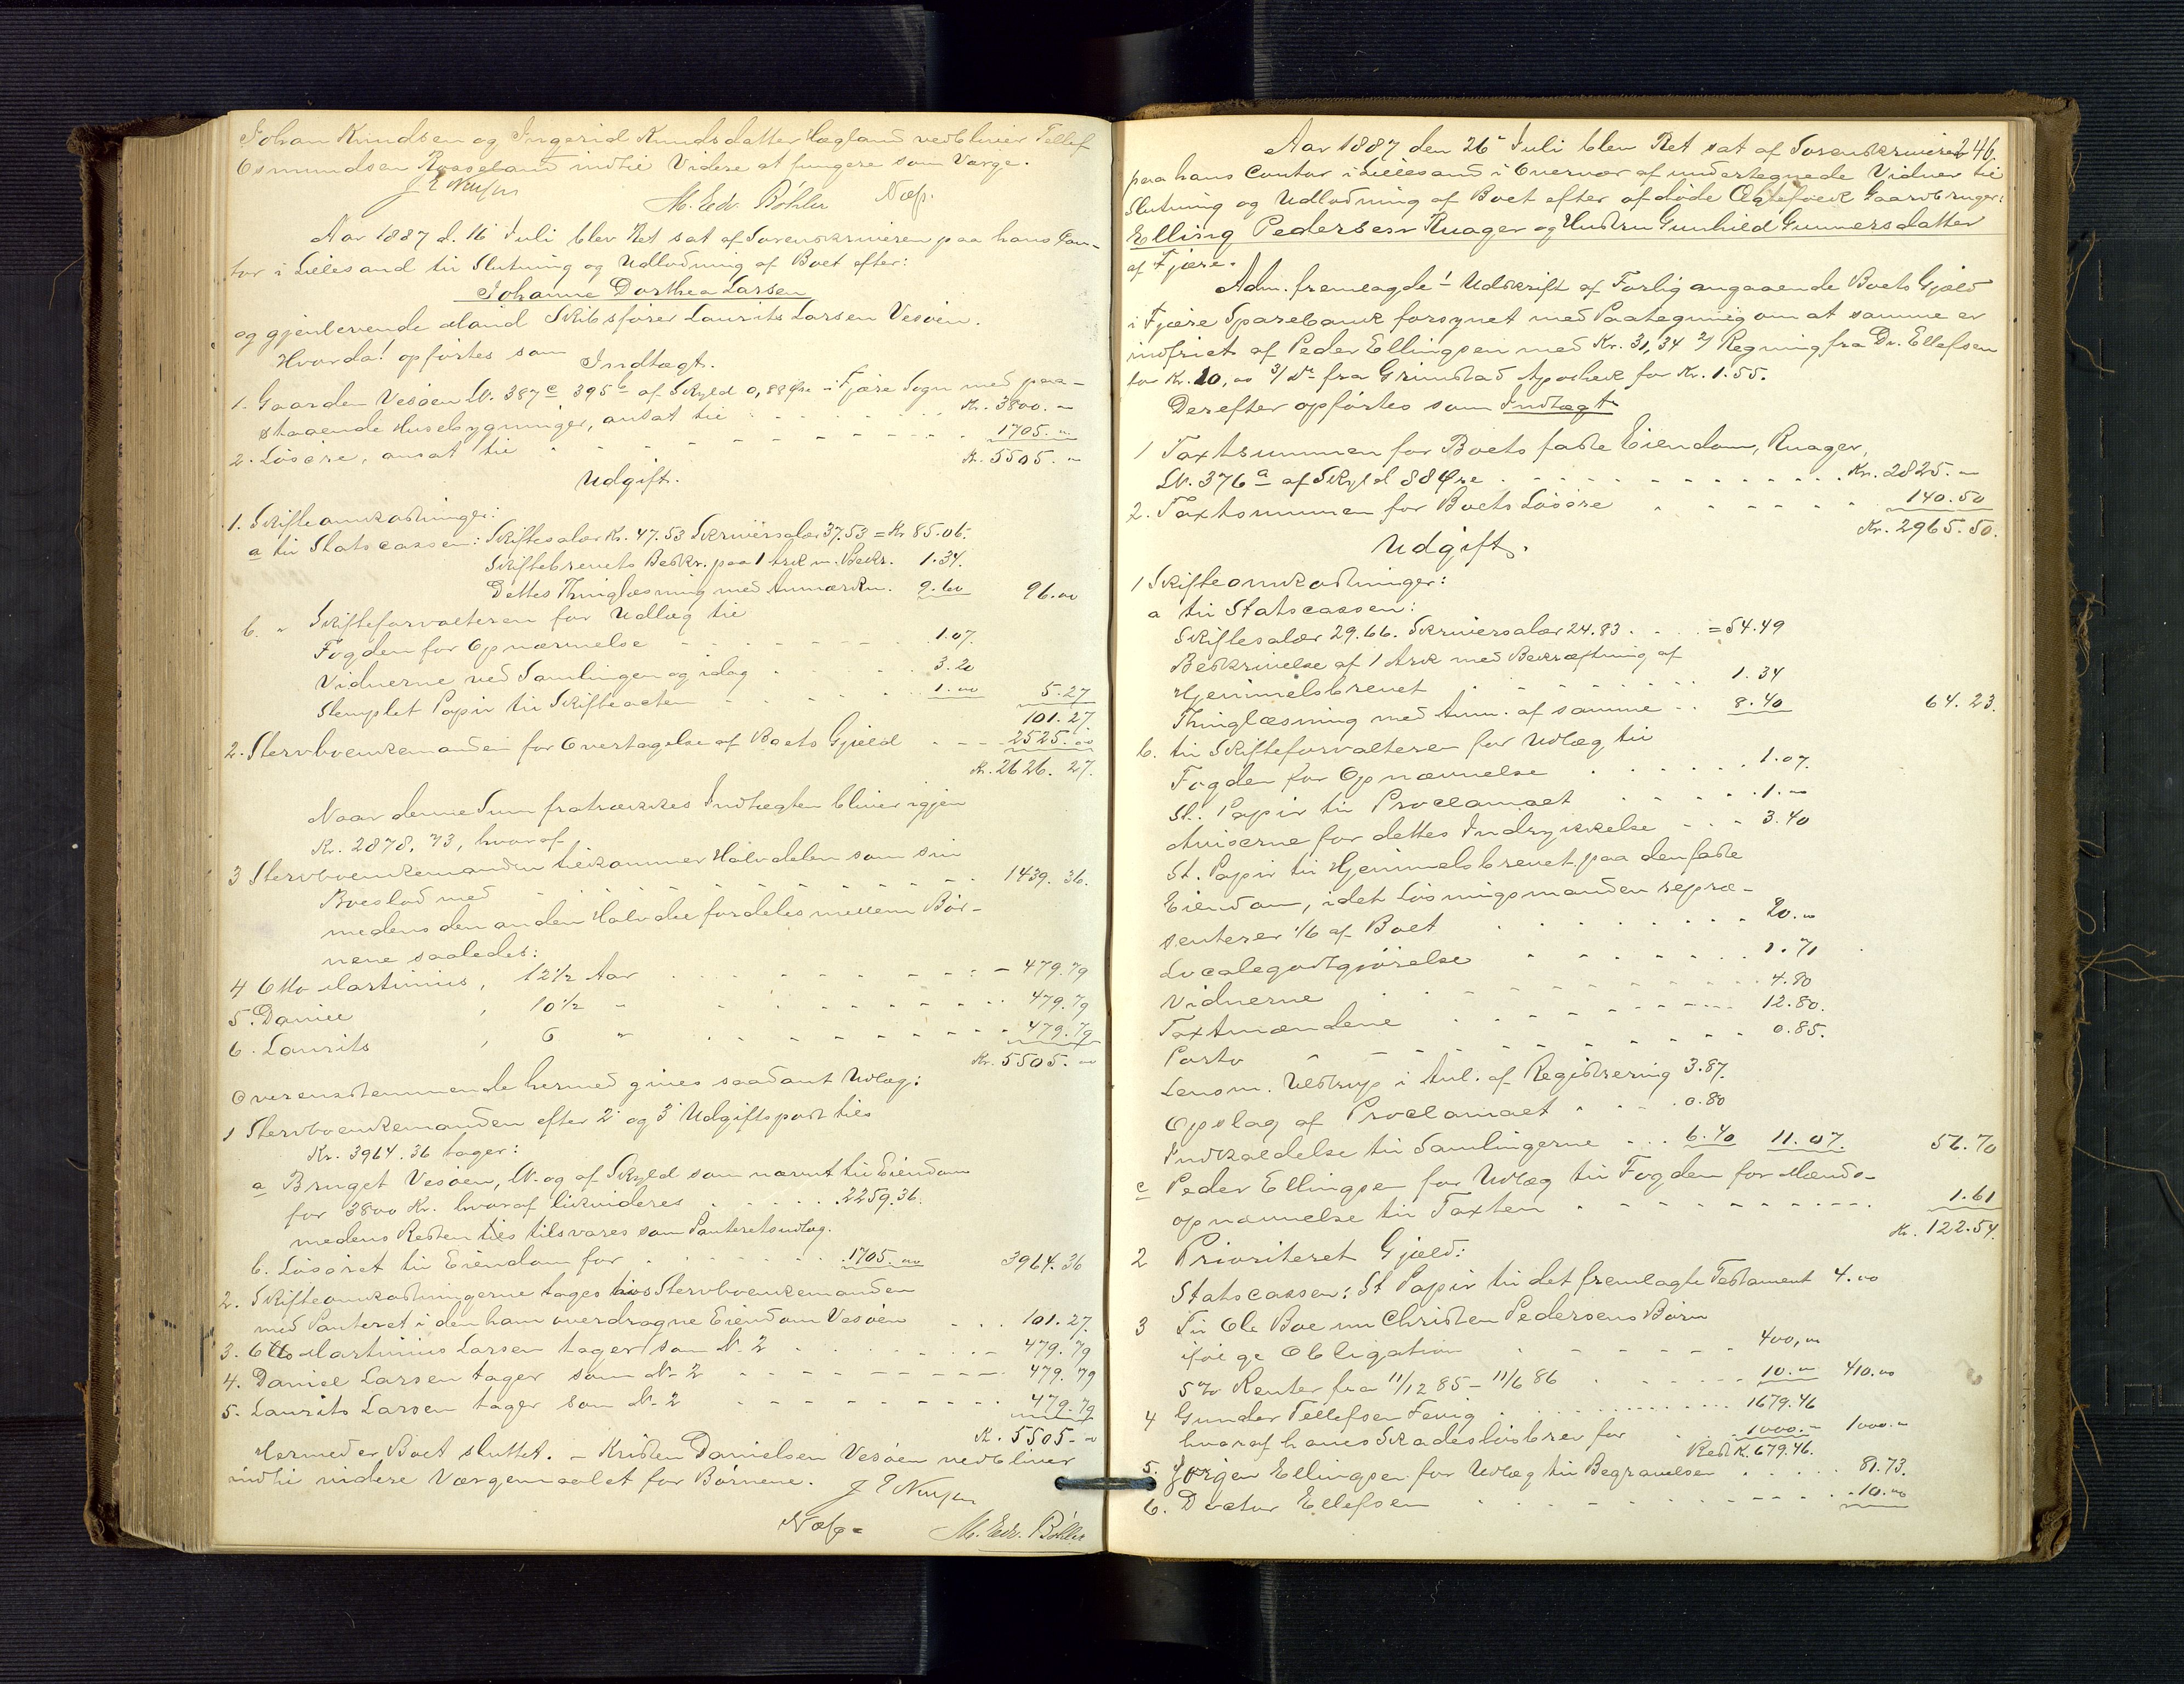 Johan Knudsen og Ingerid Knudsdatter Høgland vedbliver Tellef
Osmundsen Rosseland indtil Videre at fungere som Værge.
M. Edv. Böhler
Aar 1887 d. 16 Juli blev Ret sat af Sorenskriveren paa hans Con-
tor i Lillesand til Slutning og Udlodning af Boet efter:
Johanne Dorthea Larsen
og gjenlevende Mand Skibsfører Laurits Larsen Vesøen.
Hvorda! opførtes som
Indtægt.
1. Gaarden Vesøen LN. 387c 395b af Skyld 0,88 Øre i Fjære Sogn med paa-
staaende Husebygninger, ansat til Kr. 3800. "
2. Løsøre, ansat til 1705. "
Kr. 5505. "
Udgift.
1. Skifteomkostninger:
a til Statscassen: Skiftesalær Kr. 47.53 Skriversalær 37.53 = Kr 85.06.
Skiftebrevets Beskr. paa 1 Ark m. Bekr. 1.34.
Dettes Thinglæsning med Anmærkn. 9.60 96.00
b. " Skifteforvalteren for Udlæg til
Fogden for Opnævnelse 1.07.
Vidnerne ved Samlingen og idag 3.20
Stemplet Papir til Skifteacten 1.00 5.27
101.27
2. Stervboenkemanden for Overtagelse af Boets Gjæld 2525.00
Kr. 2626. 27.
Naar denne Sum fratrækkes Indtægten bliver igjen
Kr. 2878, 73, hvoraf
3 Stervboenkemanden tilkommer Halvdelen som sin
Boeslod med 1439. 36.
medens den anden Halvdel fordeles mellem Bør-
nene saaledes:
4 Otto Martinius, 12 1/2 Aar 479.79
5. Daniel, 10 1/2 " 479.79
6. Laurits, 6 " 479.79
Kr. 5505. 00
Overensstemmende hermed gives saadant Udlæg:
1 Stervboenkemanden efter 2' og 3' Udgiftspost til
Kr. 3964.36 tager:
a Bruget Vesøen, LN. og af Skyld som nævnt til Eiendom
for 3800 Kr. hvoraf likvideres 2259.36.
medens Resten tilsvares som Panteretsudlæg.
b. Løsøret til Eiendom for 1705.00 3964.36
2. Skifteomkostningerne tages hos Stervboenkemanden
med Panteret i den ham overdragne Eiendom Vesøen 101.27.
3. Otto Martinius Larsen tager som N. 2 479.79
4. Daniel Larsen tager som N. 2 479.79
5. Laurits Larsen tager som N. 2 479.79
K. 5505. "
Hermed er Boet sluttet. - Kristen Danielsen Vesøen vedbliver
indtil videre Værgemaalet for Børnene.
M. Edv. Böhler
246.
Aar 1887 den 26' Juli blev Ret sat af Sorenskriveren
paa hans Contor i Lillesand i Overvær af undertegnede Vidner til
Slutning og Udlodning af Boet efter afdøde Ægtefolk Gaardbruger:
Elling Pedersen Ruager og Hustru Gunhild Gunnersdatter
af Fjære.
Adm. fremlagde 1/ Udskrift af Forlig angaaende Boets Gjæld
i Fjære Sparebank forsynet med Paategning om at samme er
indfriet af Peder Ellingsen med Kr. 31,34 2/ Regning fra Dr. Ellefsen
for Kr. 10,00 3/ Do fra Grimstad Apothek for Kr. 1.55.
Derefter opførtes som Indtægt
1 Taxtsummen for Boets faste Eiendom, Ruager,
LN. 376a af Skyld 88 Øre Kr. 2825. "
2. Taxtsummen for Boets Løsøre 140.50
Kr. 2965.50.
Udgift.
1 Skifteomkostninger:
a til Statscassen:
Skiftesalær 29.66. Skriversalær 24.83 = 54.49
Beskrivelse af 1 Ark med Bekræftning af
Hjemmelsbrevet 1.34
Thinglæsning med Anm. af samme 8.40 64.23.
b. til Skifteforvalteren for Udlæg til
Fogden for Opnævnelse 1.07.
St. Papir til Proclamaet 1. "
Aviserne for dettes Indrykkelse 3.40
St. Papir til Hjemmelsbrevet paa den faste
Eiendom, idet Løsningsmanden repræ-
senterer 1/6 af Boet 20. "
Localegodtgjørelse 1.71
Vidnerne 4.80
Taxtmændene 12.80.
Porto 0.85.
Lensm. Ueltrup i Anl. af Registrering 3.87.
Opslag af Proclamaet 0.80
Indkaldelse til Samlingerne 6.40 11.07. 56.70
c Peder Ellingsen for Udlæg til Fogden for Mænds-
opnævnelse til Taxten 1.61
Kr. 122.54.
2 Prioriteret Gjæld:
Statscassen: St Papir til det fremlagte Testament 4.00
3 Til Ole Boe nu Christen Pedersens Børn
ifølge Obligation 400,00
5% Renter fra 11/12 85 - 11/6 86 10. " 410.00
4 Gunder Tellefsen Fevig 1679.46
hvoraf hans Skadesløsbrev for 1000. " 1000. "
Rest K. 679.46.
5. Jørgen Ellingsen for Udlæg til Begravelsen 81.73.
6. Doctor Ellefsen 10.00